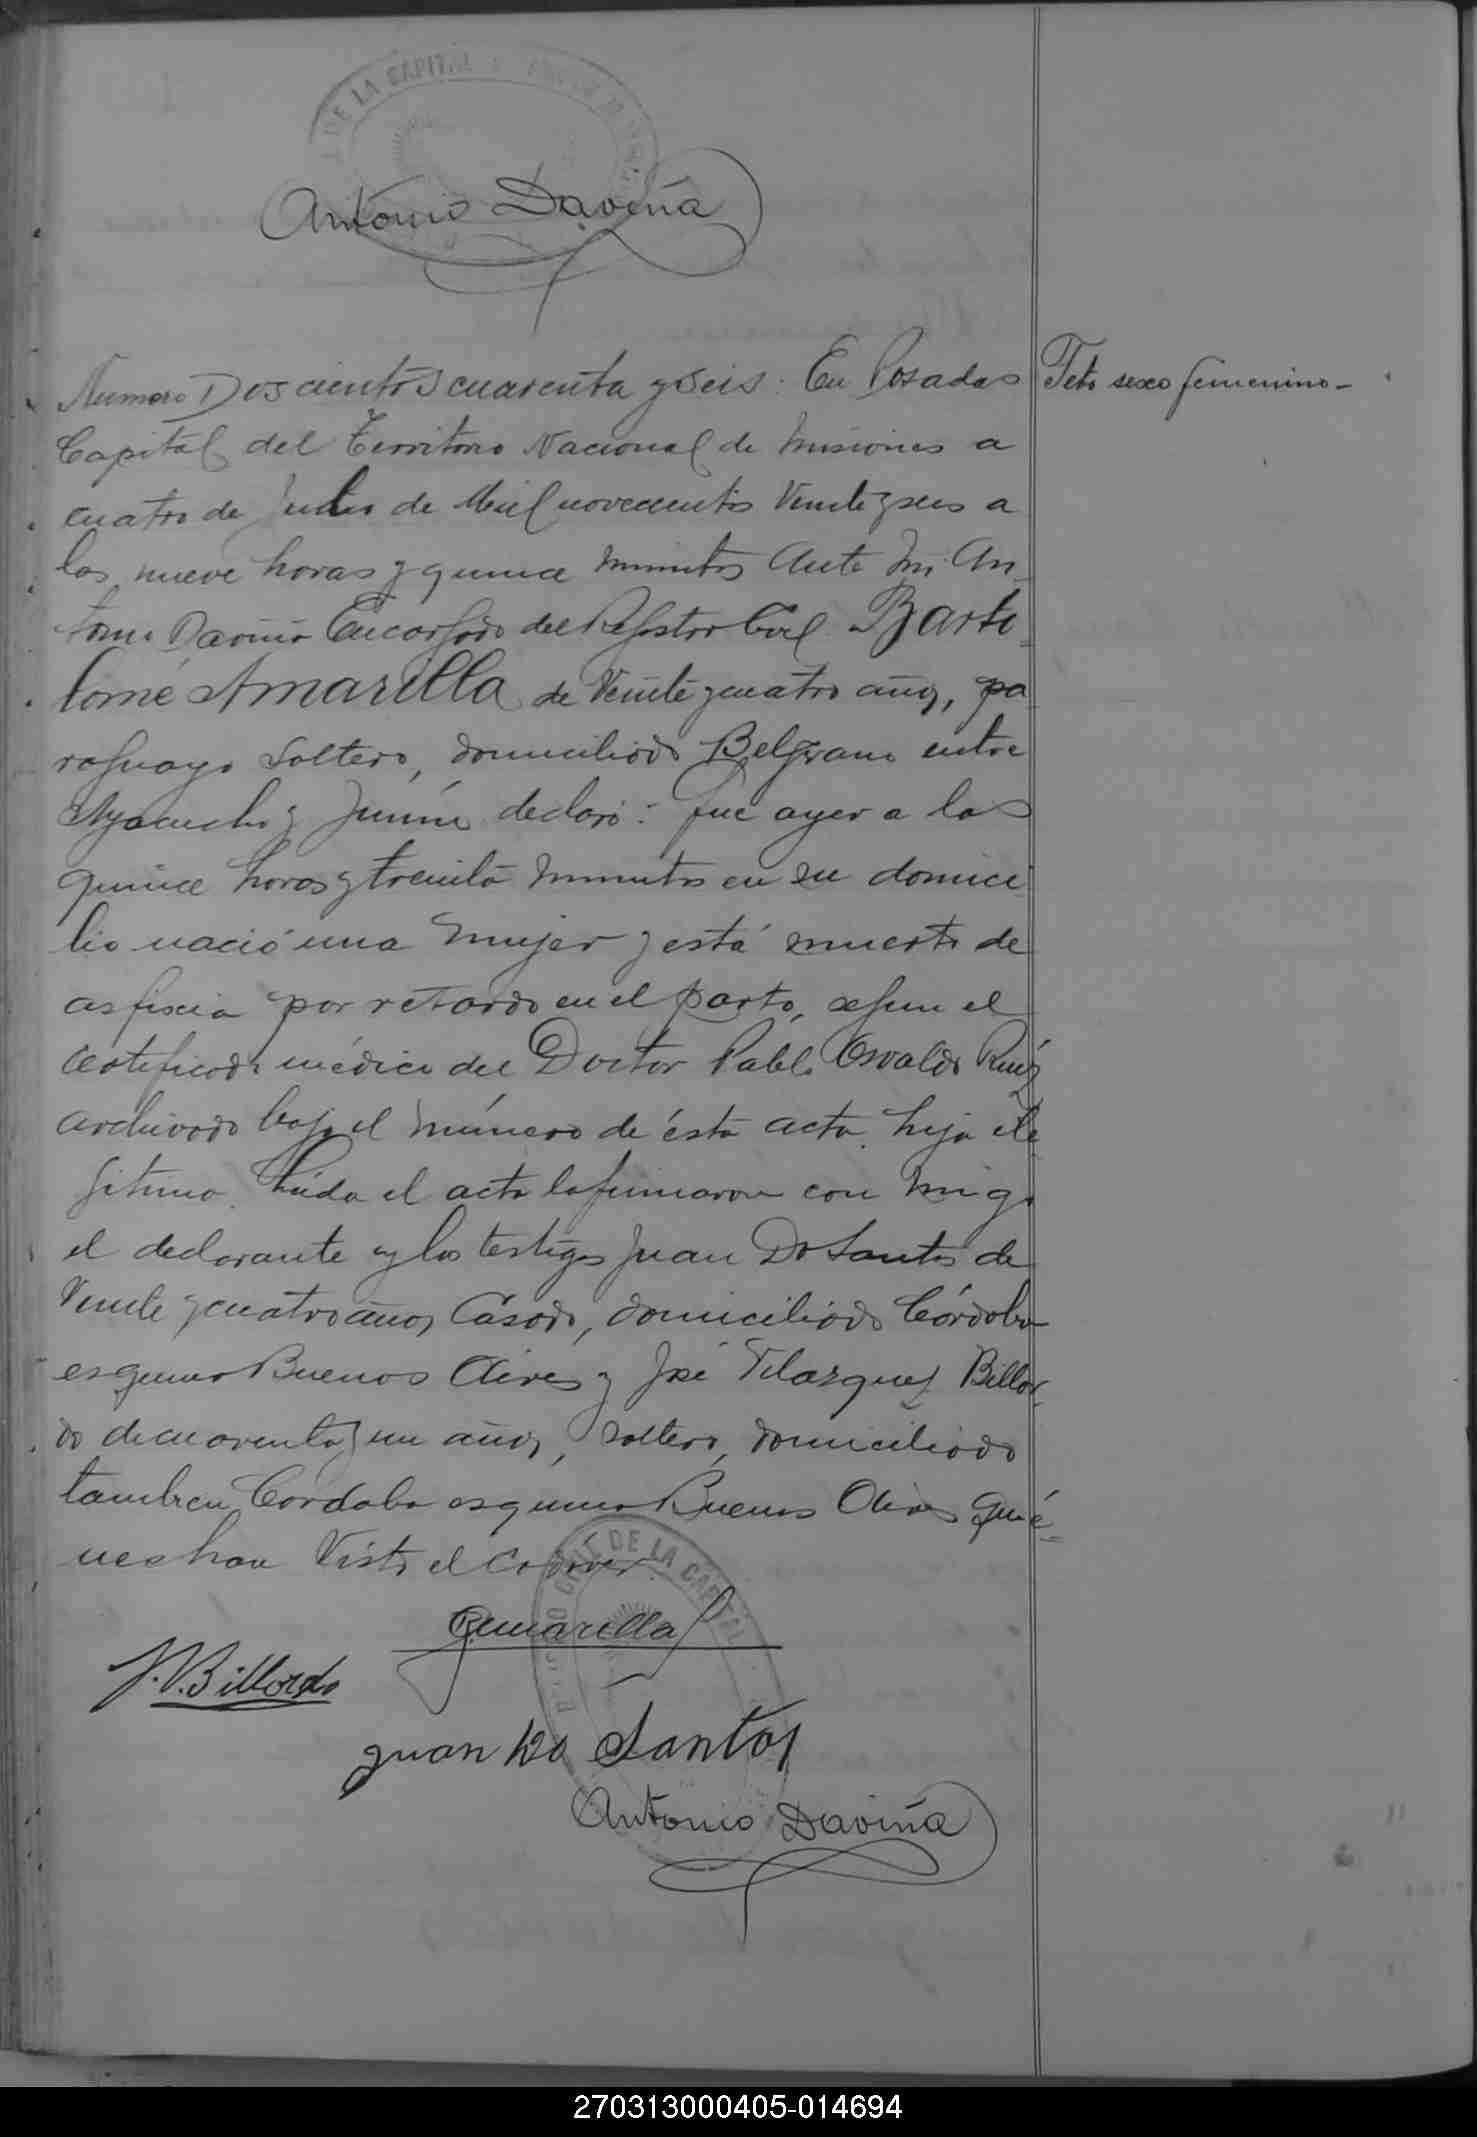 DE LA CAPITAL
Antonio Daviña
Numero Doscientos cuarenta y seis. En Posadas
Feto sexo femenino-
Capital del Territorio Nacional de Misiones a
cuatro de Julio de Mil novecientos Veinte y seis a
las nueve horas y quince minutos Ante Mi An-
tonio Daviña Encargado del Registro Civil Barto-
lomé Amarilla de Veinte y cuatro años, pa
raguayo Soltero, domiciliado Belgrano entre
Ayacucho y Junín declaró: que ayer a las
quince horas y treinta minutos en su domici
lio nació una mujer y está muerta de
asfixia por retardo en el parto, segun el
certificado médico del Doctor Pablo Osvaldo Ruiz
archivado bajo el número de ésta acta, hija ile
gitima. Leida el acta la firmaron con migo
el declarante y los testigos Juan Do Santos de
Veinte y cuatro años Casado, domiciliado Córdoba
esquina Buenos Aires y José Velazquez Billor
do de cuarenta y un años, soltero, domiciliado
tambien Cordoba esquina Buenos Aires quié-
nes han Visto el cadáver.
DE LA CAPITAL
Amarilla
J. V. Billordo
Juan Do Santos
Antonio Daviña
270313000405-014694